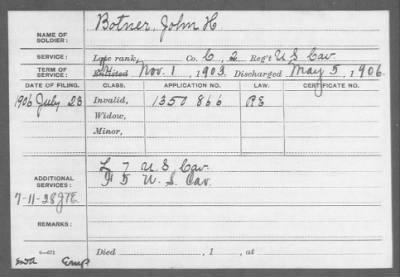 NAME OF SOLDIER: Botner, John H
SERVICE: Late rank, Co. C, 2 Reg't U S Cav
TERM OF SERVICE: Enlisted Nov. 1, 1903. Discharged May 5, 1906.
DATE OF FILING. CLASS. APPLICATION NO. LAW. CERTIFICATE NO.
1906 July 23 Invalid, 1350866
Widow,
Minor,
L 7 U S Cav
ADDITIONAL SERVICES: D U. S. Cav.
7-11-28
REMARKS:
Died , 1 , at